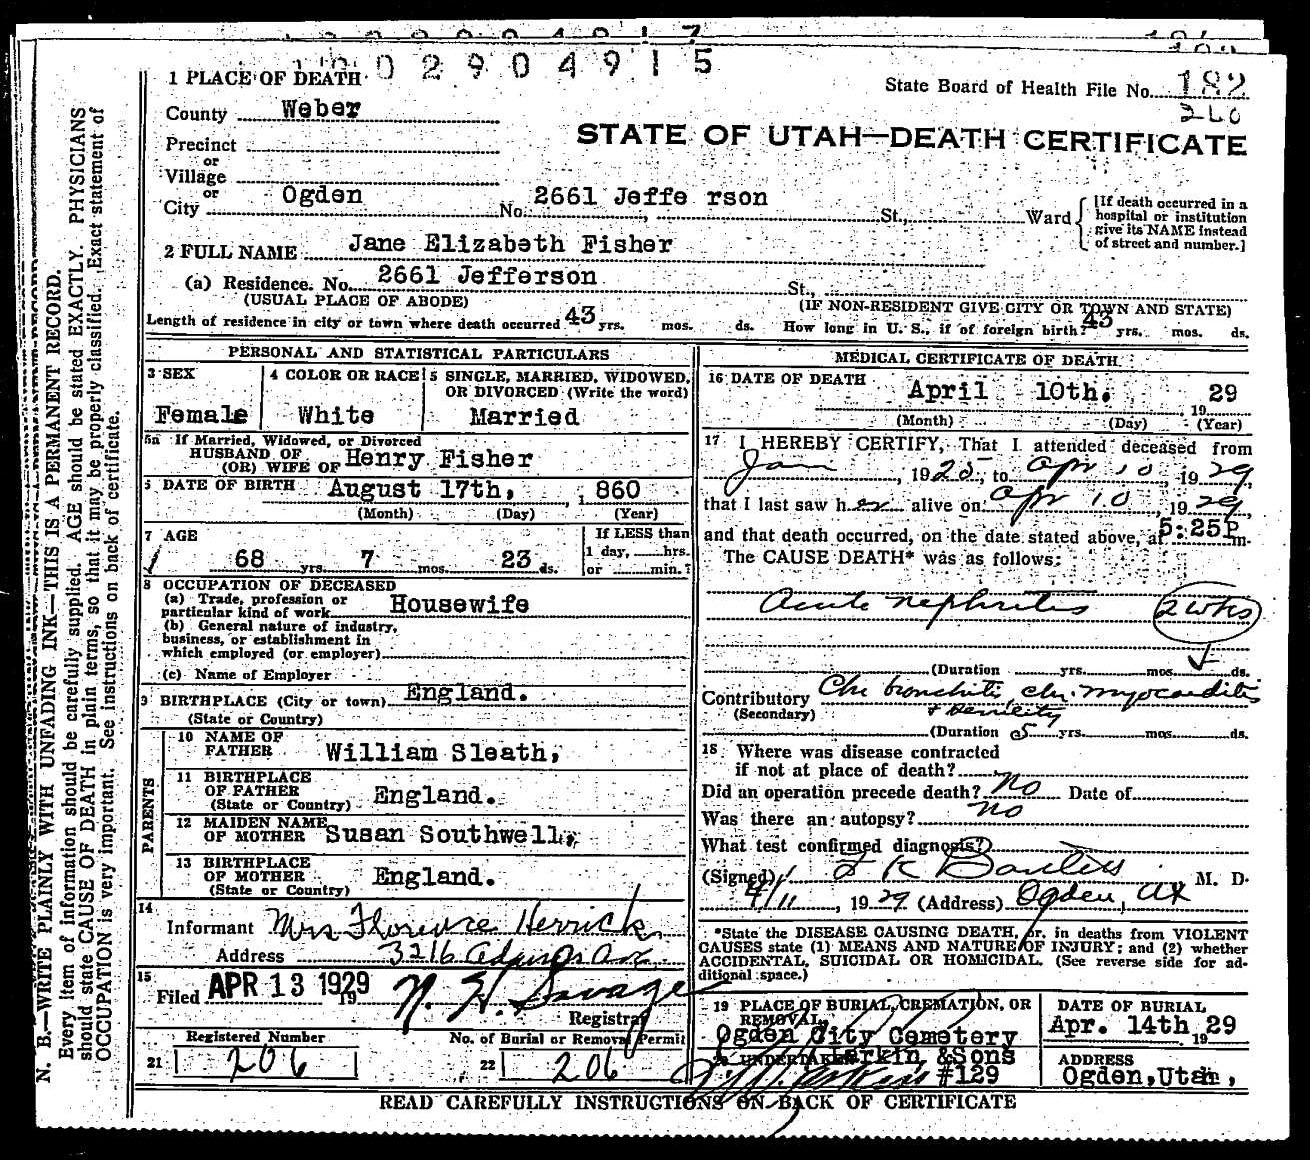 0 2 9 0 4 9 1 5
1 PLACE OF DEATH
State Board of Health File No. 182
260
County Weber
STATE OF UTAH—DEATH CERTIFICATE
Precinct
or
Village
or
City Ogden No. 2661 Jeffe rson St., Ward
[If death occurred in a
hospital or institution
give its NAME instead
of street and number.]
2 FULL NAME Jane Elizabeth Fisher
(a) Residence. No. 2661 Jefferson St.,
(USUAL PLACE OF ABODE) (IF NON-RESIDENT GIVE CITY OR TOWN AND STATE)
Length of residence in city or town where death occurred 43 yrs. mos. ds. How long in U. S., if of foreign birth? 43 yrs. mos. ds.
PERSONAL AND STATISTICAL PARTICULARS
3 SEX
Female
4 COLOR OR RACE
White
5 SINGLE, MARRIED, WIDOWED,
OR DIVORCED (Write the word)
Married
5a If Married, Widowed, or Divorced
HUSBAND OF
(OR) WIFE OF Henry Fisher
6 DATE OF BIRTH August 17th, , 1860
(Month) (Day) (Year)
7 AGE
68 yrs. 7 mos. 23 ds.
If LESS than
1 day, hrs.
or min.?
8 OCCUPATION OF DECEASED
(a) Trade, profession or
particular kind of work Housewife
(b) General nature of industry,
business, or establishment in
which employed (or employer)
(c) Name of Employer
9 BIRTHPLACE (City or town) England.
(State or Country)
PARENTS
10 NAME OF
FATHER William Sleath,
11 BIRTHPLACE
OF FATHER
(State or Country) England.
12 MAIDEN NAME
OF MOTHER Susan Southwell,
13 BIRTHPLACE
OF MOTHER
(State or Country) England.
14
Informant Mrs Florence Herrick,
Address 3216 Adams Ave
15
Filed APR 13 1929 19
N. H. Savage
Registrar
Registered Number
21 206
No. of Burial or Removal Permit
22 206
MEDICAL CERTIFICATE OF DEATH
16 DATE OF DEATH April 10th. 1929
(Month) (Day) (Year)
17 I HEREBY CERTIFY, That I attended deceased from
Jan , 1925, to Apr 10, 1929,
that I last saw her alive on Apr 10, 1929,
and that death occurred, on the date stated above, at 5:25P m.
The CAUSE DEATH* was as follows:
Acute nephritis 2 wks
(Duration yrs. mos. ds.
Contributory Chr bronchitis, chr. myocarditis
(Secondary) + senility
(Duration 5 yrs. mos. ds.
18 Where was disease contracted
if not at place of death?
Did an operation precede death? No Date of
Was there an autopsy? No
What test confirmed diagnosis?
(Signed) , M. D.
4/11, 1929 (Address) Ogden, Ut
*State the DISEASE CAUSING DEATH, or, in deaths from VIOLENT
CAUSES state (1) MEANS AND NATURE OF INJURY; and (2) whether
ACCIDENTAL, SUICIDAL OR HOMICIDAL. (See reverse side for ad-
ditional space.)
19 PLACE OF BURIAL, CREMATION, OR
REMOVAL
Ogden City Cemetery
DATE OF BURIAL
Apr. 14th 1929
20 UNDERTAKER Larkin, &Sons
#129
ADDRESS
Ogden, Utah,
READ CAREFULLY INSTRUCTIONS ON BACK OF CERTIFICATE
N. B.—WRITE PLAINLY WITH UNFADING INK—THIS IS A PERMANENT RECORD.
Every item of information should be carefully supplied. AGE should be stated EXACTLY. PHYSICIANS
should state CAUSE OF DEATH in plain terms, so that it may be properly classified. Exact statement of
OCCUPATION is very important. See instructions on back of certificate.